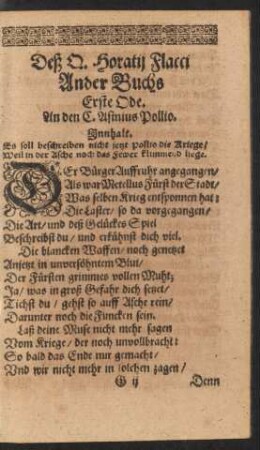 Deß Q. Horatij Flacci
Ander Buchs
Erste Ode.
An den C. Asinius Pollio.
Jnnhalt.
Es soll beschreiben nicht jetzt Pollio die Kriege/
Weil in der Asche noch das Fewer klimmend liege.
DEr Bürger Auffruhr angegangen/
Als war Metellus Fürst der Stadt/
Was selben Krieg entsponnen hat:
Die Laster/ so da vorgegangen/
Die Art/ und deß Gelückes Spiel
Beschreibst du/ und erkühnst dich viel.
Die blancken Waffen/ noch genetzet
Anjetzt in unversöhntem Blut/
Der Fürsten grimmes vollen Muht;
Ja/ was in groß Gefahr dich setzet/
Tichst du/ gehst so auff Asche rein/
Darunter noch die Funcken sein.
Laß deine Muse nicht mehr sagen
Vom Kriege/ der noch unvollbracht:
So bald das Ende nur gemacht/
Und wir nicht mehr in solchen zagen/
G ij Denn